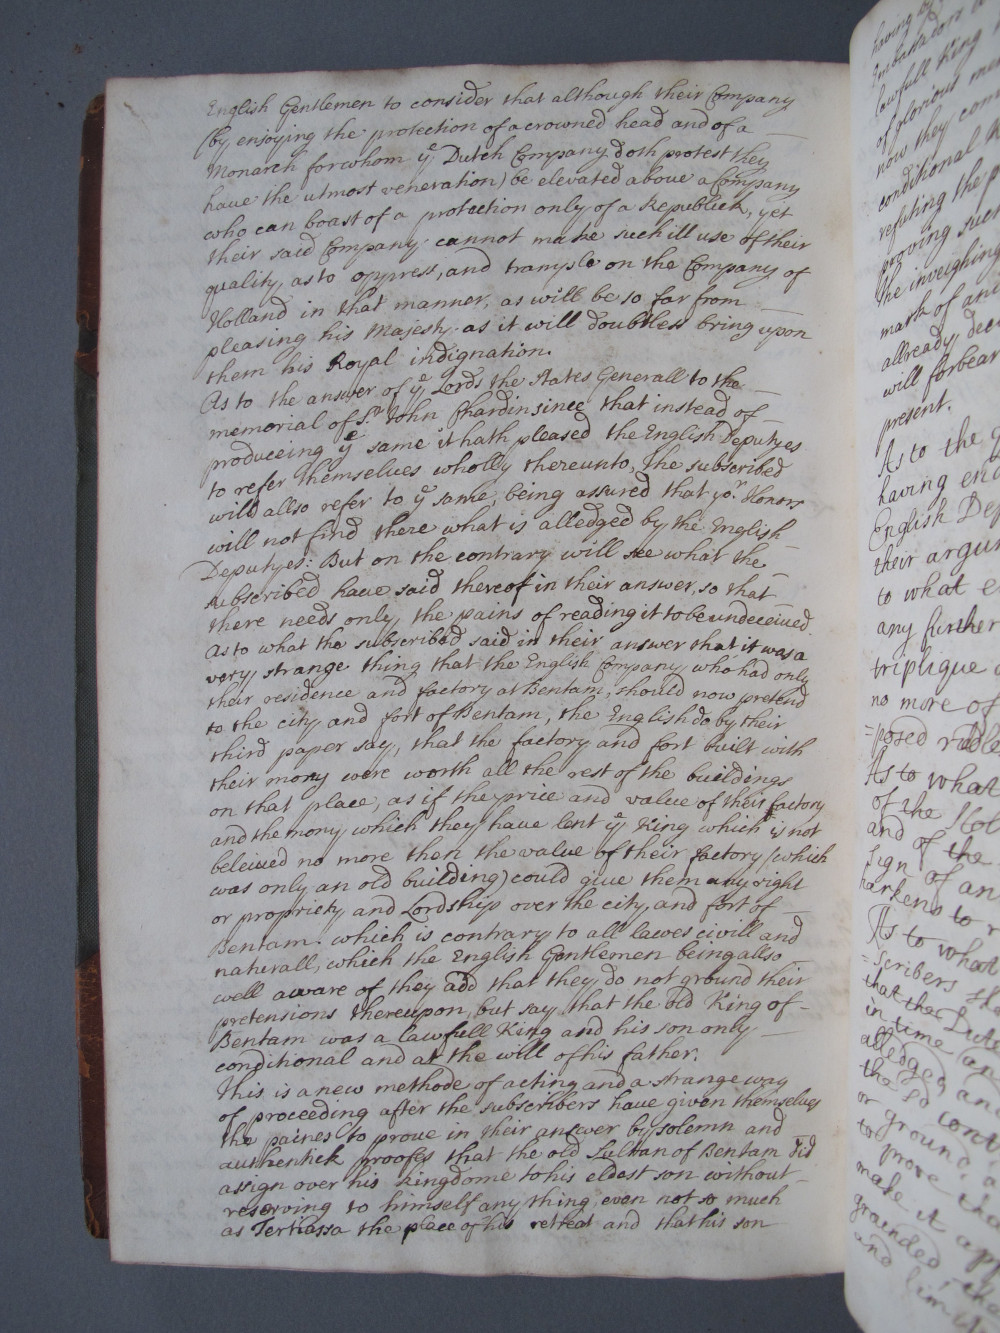 English Gentlemen to consider that although their Company
(by enjoying the protection of a crowned head and of a
Monarch for whom ye Dutch Company doth protest they
have the utmost veneration) be elevated above a Company
who can boast of a protection only of a Republick, yet
their said Company cannot make such ill use of their
quality, as to oppress, and trample on the Company of
Holland in that manner, as will be so far from
pleasing his Majesty as it will doubtless bring upon
them his Royal indignation.
As to the answer of ye Lords the States Generall to the
memorial of Sr. John Chardin since that instead of
produceing ye same it hath pleased the English Deputyes
to refer themselves wholly thereunto, the subscribed
will allso refer to ye same, being assured that yor. Honors
will not find there what is alledged by the English
Deputyes: But on the contrary will see what the
subscribed have said thereof in their answer, so that
there needs only the pains of reading it to be undeceived.
As to what the subscribed said in their answer that it was a
very strange thing that the English Company who had only
their residence and factory at Bentam, should now pretend
to the city and fort of Bentam, the English do by their
third paper say, that the factory and fort built with
their mony were worth all the rest of the buildings
on that place, as if the price and value of their factory
and the mony which they have lent ye King which is not
beleived no more then the value of their factory (which
was only an old building) could give them any right
or propriety and Lordship over the city, and fort of
Bentam. which is contrary to all lawes civill and
naturall, which the English Gentlemen being allso
well aware of they add that they do not ground their
pretensions thereupon, but say that the old King of
Bentam was a lawfull King and his son only
conditional and at the will of his father.
This is a new methode of acting and a strange way
of proceeding after the subscribers have given themselves
the paines to prove in their answer by solemn and
authentick proofes that the old Sultan of Bentam did
assign over his Kingdome to his eldest son without
reserving to himself any thing, even not so much
as Tertiassa the place of his retreat and that his son
having
Embassadors
lawfull King
of glorious
now they
conditional
refuting the
proving such
the inveighing
mark of
allready
will forbear
present.
As to the
having
English
their
to what
any further
triplique
no more of
=posed
As to what
of the
and of the
sign of an
harkens to
As to what
=scribers
that the
in time
alledged
the
or ground
to prove
make it
grounded
and